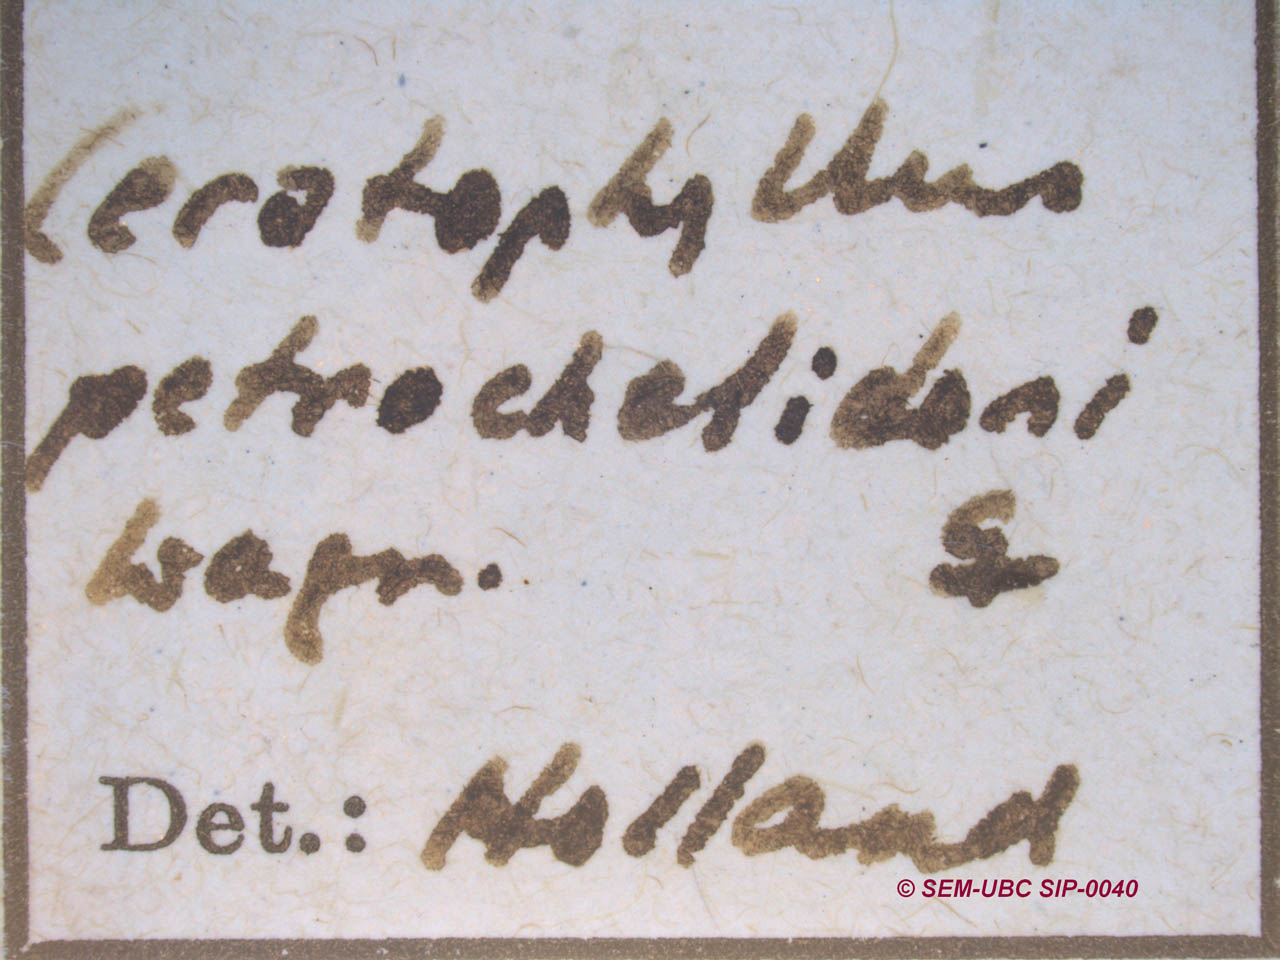 Ceratophyllus
petrochelidoni
Wagn.
Det.: Holland
© SEM-UBC SIP-0040